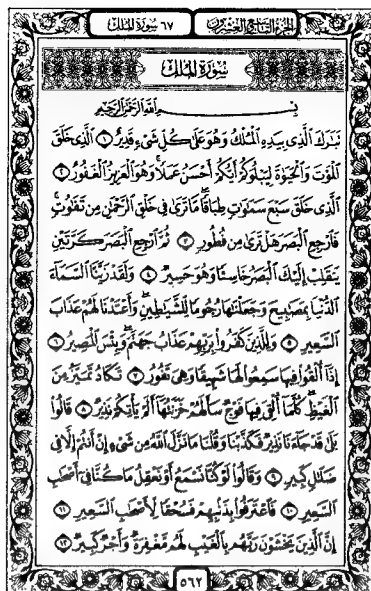 الجزء التاسع والعشرون ٦٧ سورة الملك
سُورَةُ المُلْكِ
بِسْمِ اللَّهِ الرَّحْمَٰنِ الرَّحِيمِ
تَبَٰرَكَ الَّذِي بِيَدِهِ الْمُلْكُ وَهُوَ عَلَىٰ كُلِّ شَيْءٍ قَدِيرٌ ۝١ الَّذِي خَلَقَ
الْمَوْتَ وَالْحَيَوٰةَ لِيَبْلُوَكُمْ أَيُّكُمْ أَحْسَنُ عَمَلًا وَهُوَ الْعَزِيزُ الْغَفُورُ ۝٢
الَّذِي خَلَقَ سَبْعَ سَمَٰوَٰتٍ طِبَاقًا مَّا تَرَىٰ فِي خَلْقِ الرَّحْمَٰنِ مِن تَفَٰوُتٍ
فَارْجِعِ الْبَصَرَ هَلْ تَرَىٰ مِن فُطُورٍ ۝٣ ثُمَّ ارْجِعِ الْبَصَرَ كَرَّتَيْنِ
يَنقَلِبْ إِلَيْكَ الْبَصَرُ خَاسِئًا وَهُوَ حَسِيرٌ ۝٤ وَلَقَدْ زَيَّنَّا السَّمَاءَ
الدُّنْيَا بِمَصَٰبِيحَ وَجَعَلْنَٰهَا رُجُومًا لِّلشَّيَٰطِينِ وَأَعْتَدْنَا لَهُمْ عَذَابَ
السَّعِيرِ ۝٥ وَلِلَّذِينَ كَفَرُوا بِرَبِّهِمْ عَذَابُ جَهَنَّمَ وَبِئْسَ الْمَصِيرُ ۝٦
إِذَا أُلْقُوا فِيهَا سَمِعُوا لَهَا شَهِيقًا وَهِيَ تَفُورُ ۝٧ تَكَادُ تَمَيَّزُ مِنَ
الْغَيْظِ كُلَّمَا أُلْقِيَ فِيهَا فَوْجٌ سَأَلَهُمْ خَزَنَتُهَا أَلَمْ يَأْتِكُمْ نَذِيرٌ ۝٨ قَالُوا
بَلَىٰ قَدْ جَاءَنَا نَذِيرٌ فَكَذَّبْنَا وَقُلْنَا مَا نَزَّلَ اللَّهُ مِن شَيْءٍ إِنْ أَنتُمْ إِلَّا فِي
ضَلَٰلٍ كَبِيرٍ ۝٩ وَقَالُوا لَوْ كُنَّا نَسْمَعُ أَوْ نَعْقِلُ مَا كُنَّا فِي أَصْحَٰبِ
السَّعِيرِ ۝١٠ فَاعْتَرَفُوا بِذَنبِهِمْ فَسُحْقًا لِّأَصْحَٰبِ السَّعِيرِ ۝١١
إِنَّ الَّذِينَ يَخْشَوْنَ رَبَّهُم بِالْغَيْبِ لَهُم مَّغْفِرَةٌ وَأَجْرٌ كَبِيرٌ ۝١٢
٥٦٢